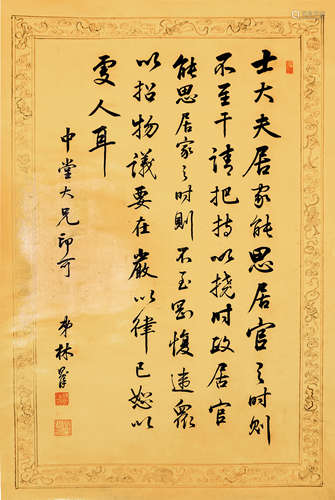 士大夫居家能思居官之时则
不至干請把持以撓时政居官
能思居家之时则不至愎違眾
以招物議要在嚴以律已恕以
雯人耳
中堂大兄印可
弟林